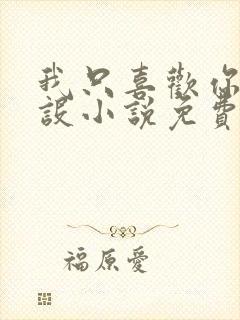 我只喜歡你
設小說免費
福原愛